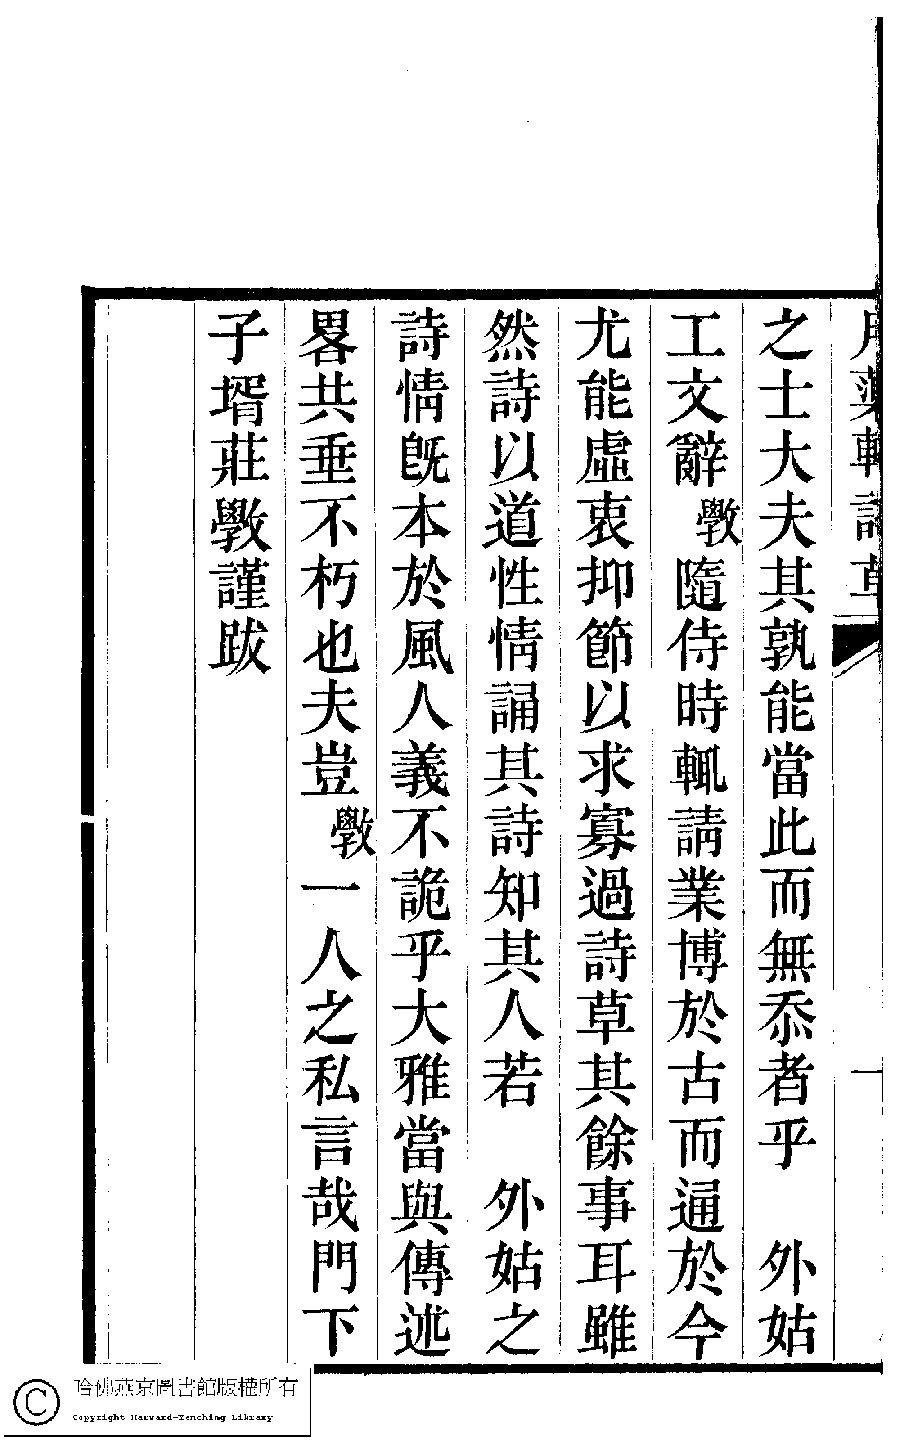 之士大夫其孰能當此而無忝者乎　外姑
工文辭斆隨侍時輒請業博於古而通於今
尤能虛衷抑節以求寡過詩草其餘事耳雖
然詩以道性情誦其詩知其人若　外姑之
詩情旣本於風人義不詭乎大雅當與傳述
畧共垂不朽也夫豈斆一人之私言哉門下
子壻莊斆謹跋
哈佛燕京圖書館版權所有
Copyright Harvard-Yenching Library